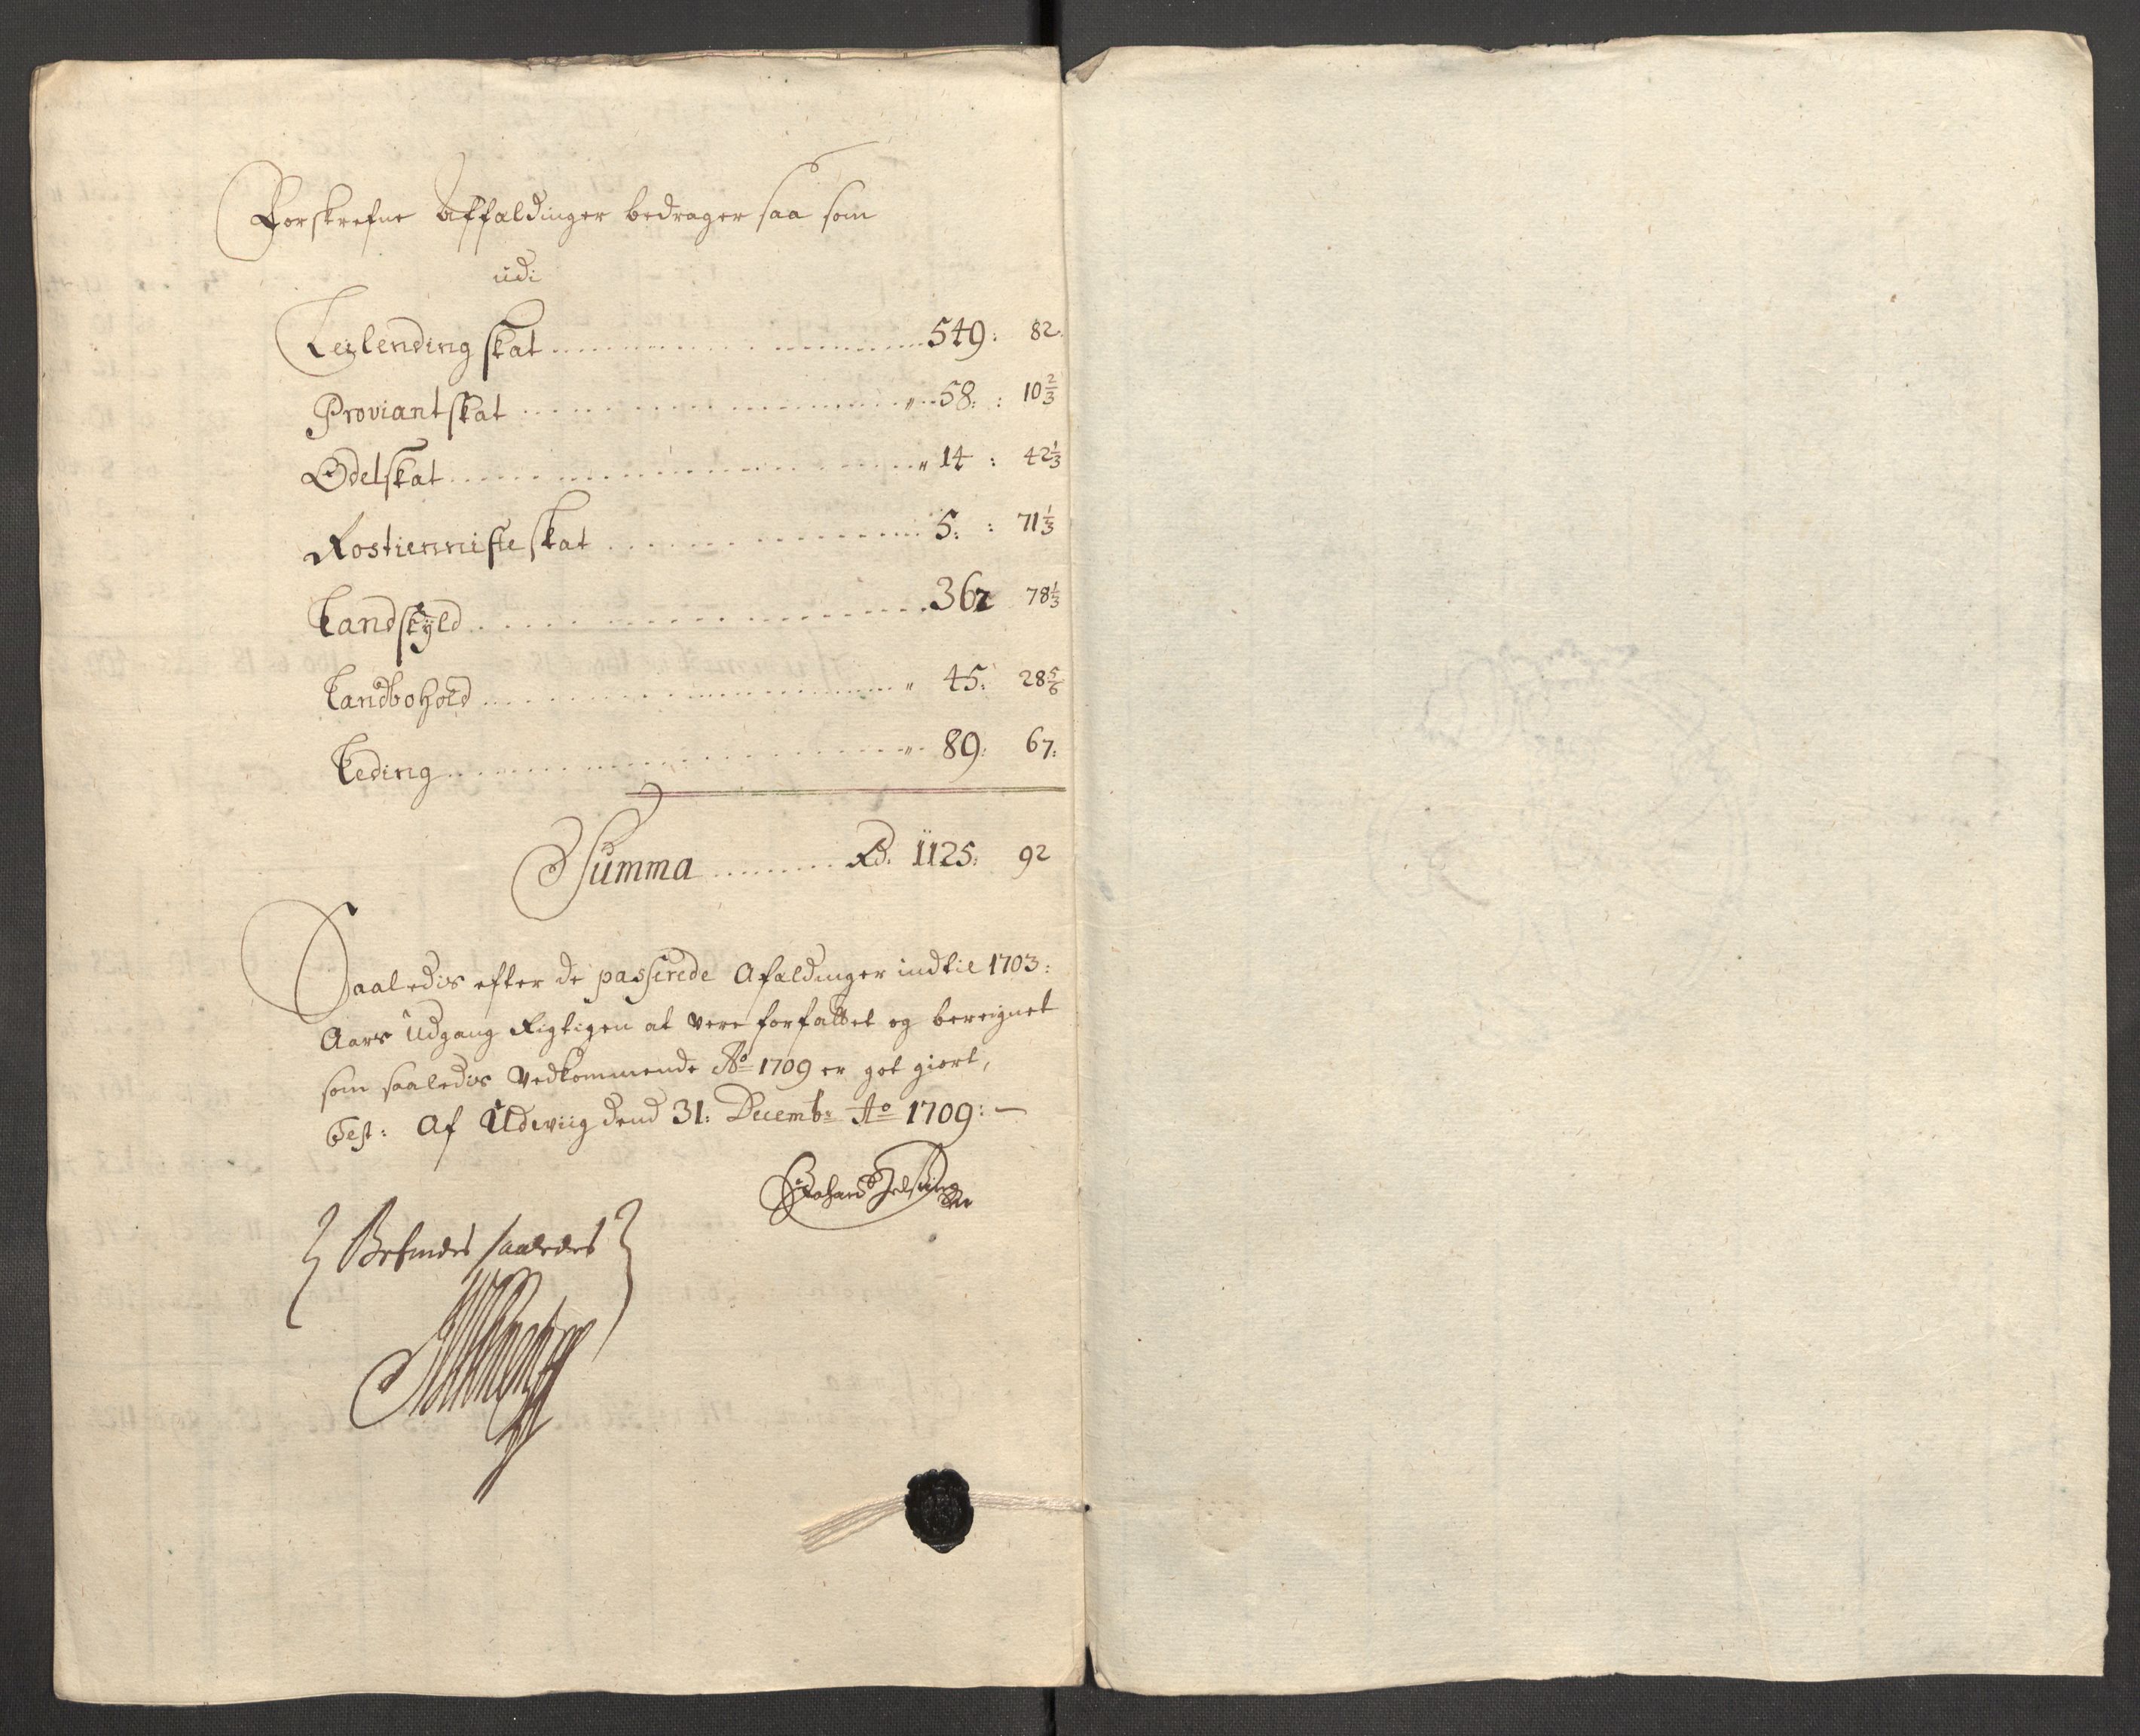 Forskrefne Affaldinger bedrager saa som
udi
Leilending skat 549: 82:
Proviant skat " 58: : 10 2/3
Odelskat " 14 : 42 1/3
Rostienniste skat 5: : 71 1/3
Landskÿld 362 78 1/3
Landbohold " 45: 28 5/6
Leding " 89: 67:
Summa Rd: 1125: 92
Saaledis efter de passerede Afaldinger indtil 1703:
Aars Udgang Rigtigen at være forfattet og bereignet
som saaledis Vedkommende Ao 1709 er got giort,
Test: Af Udwiig dend 31: Decembr: Ao 1709:
Befindes saaledes